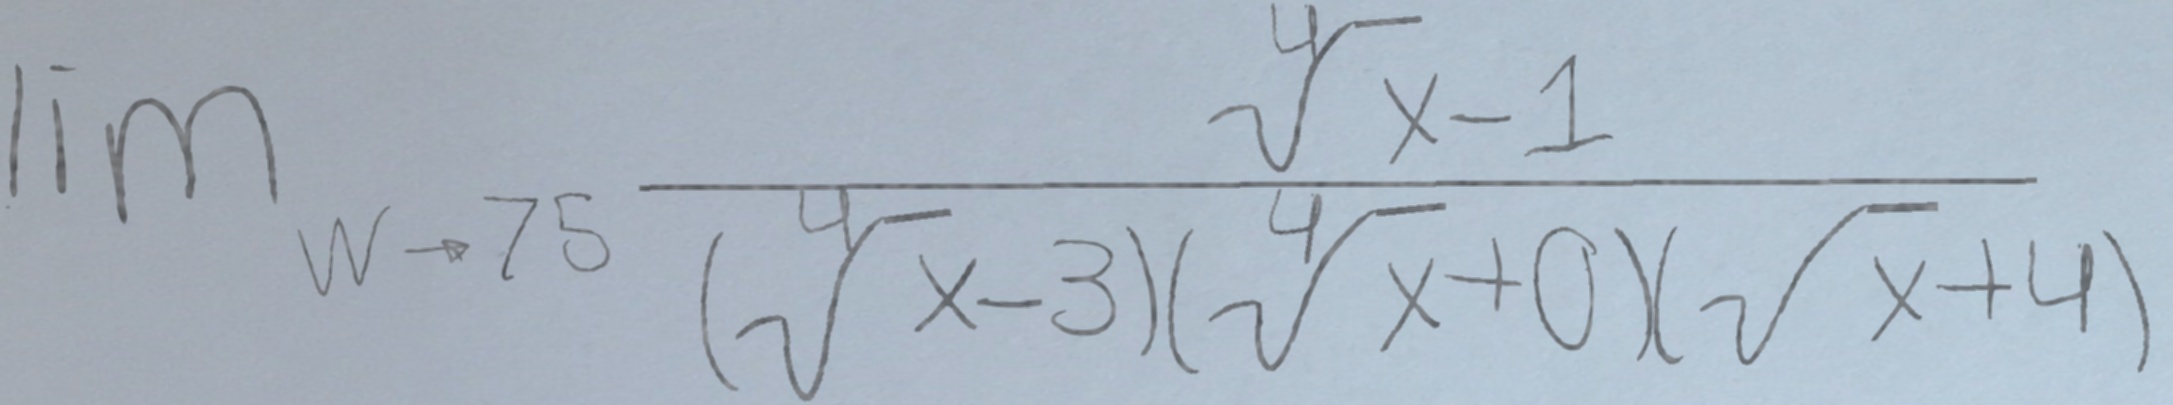 lim_{W→75} \frac{\sqrt[4]{x}-1}{(\sqrt[4]{x}-3)(\sqrt[4]{x}+0)(\sqrt{x}+4)}